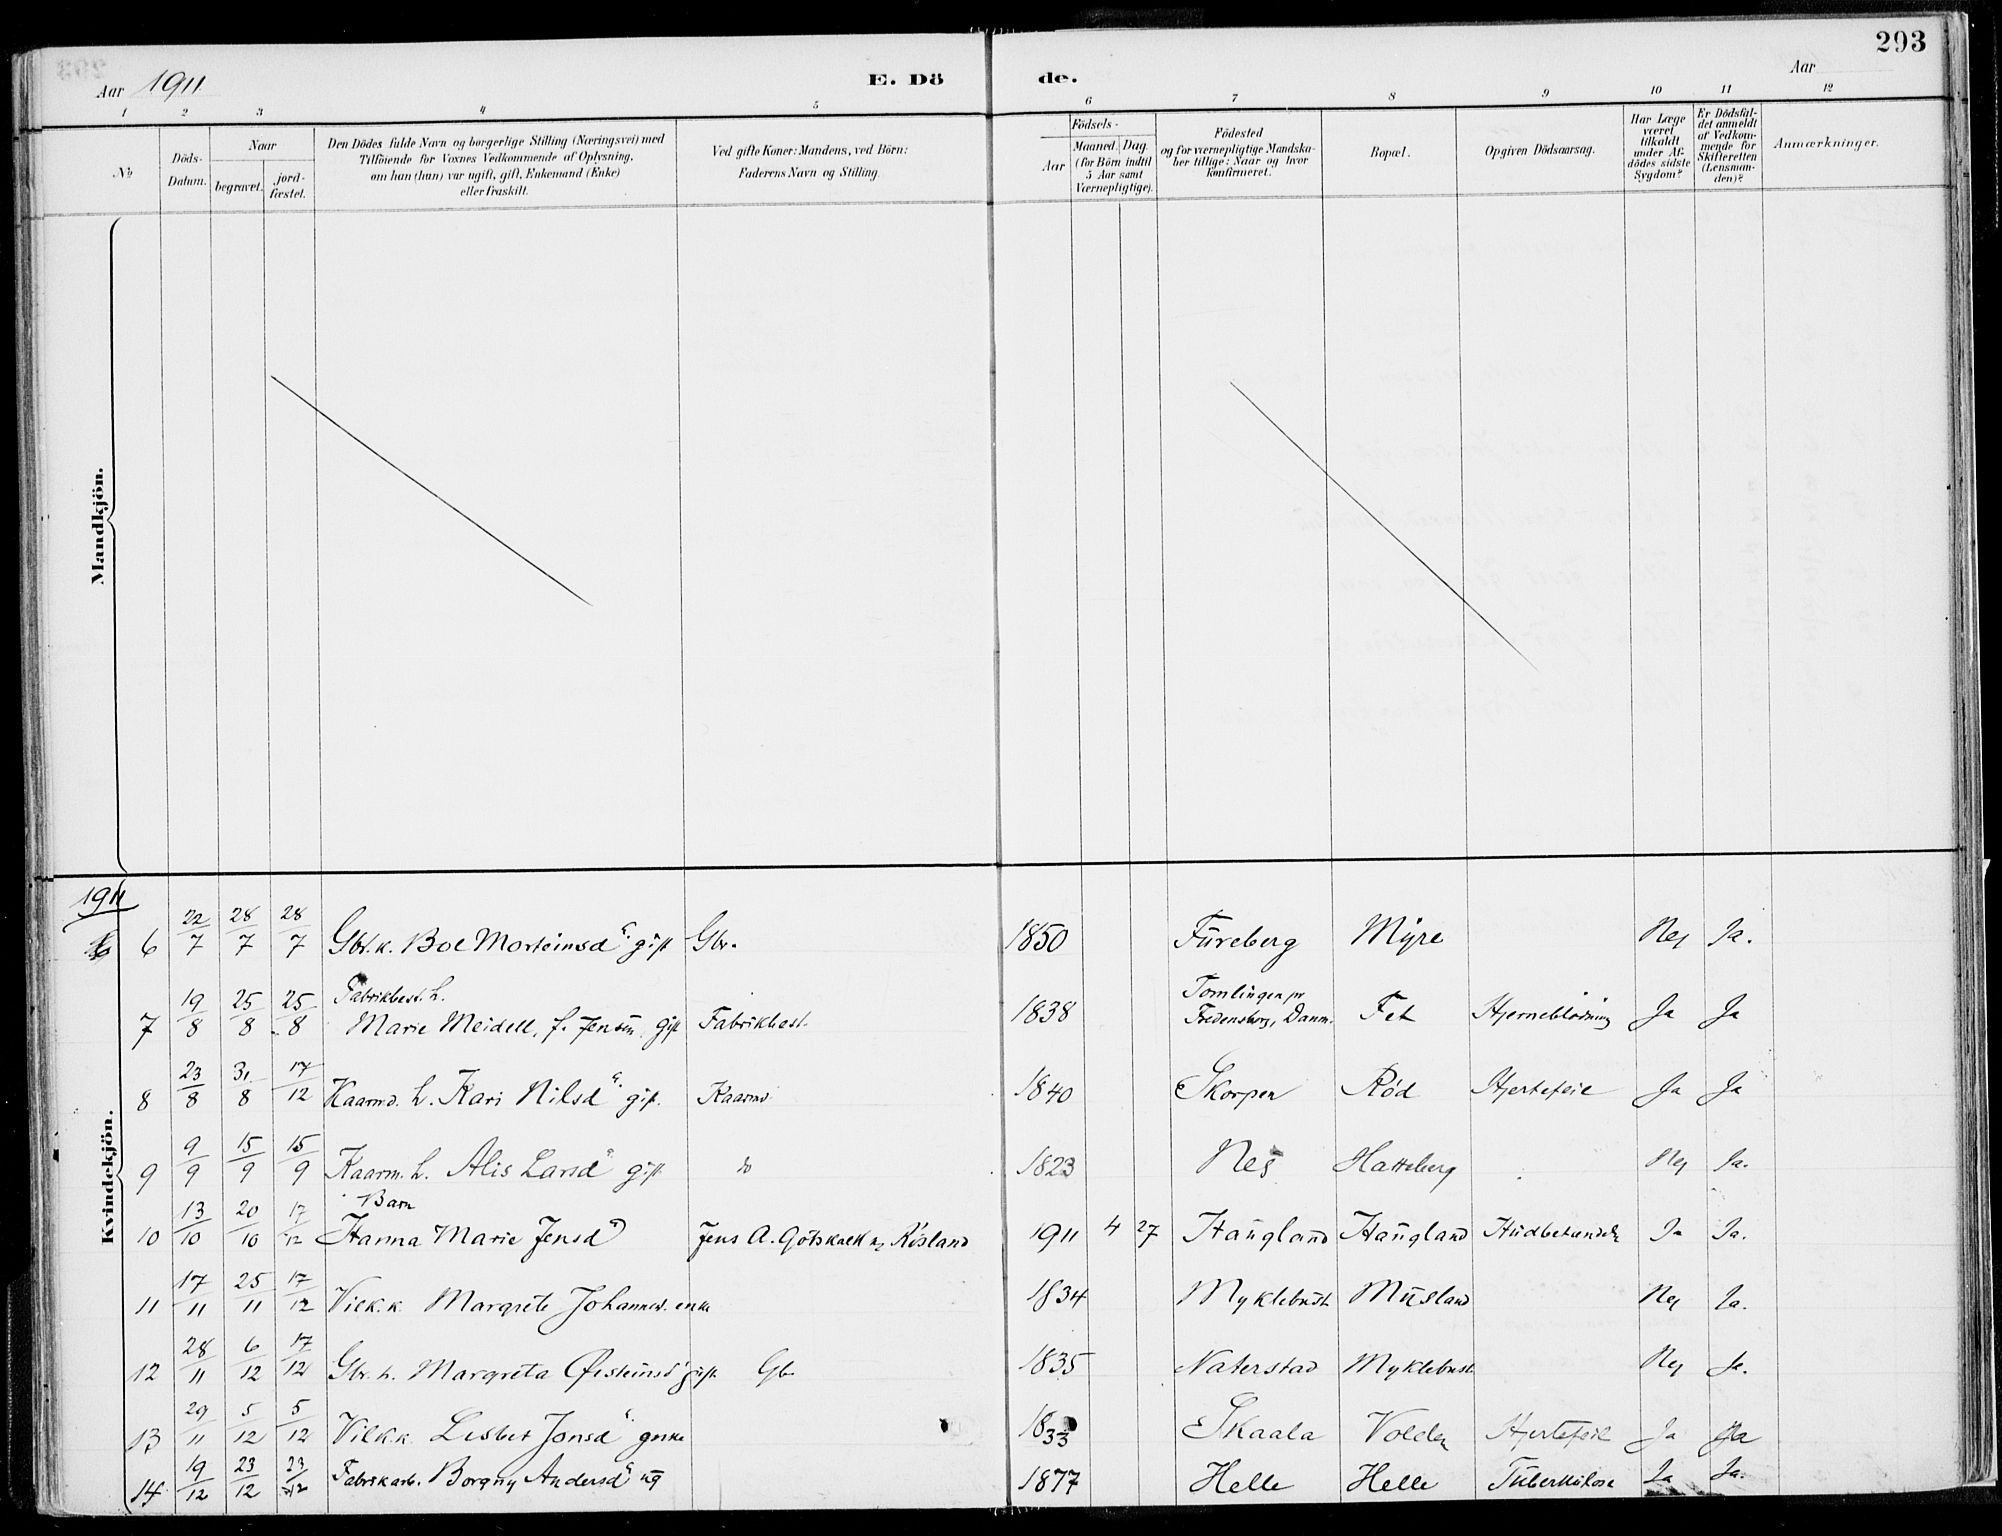 293
Aar 1911 E. Dö de. Aar
1 2 3 4 5 6 7 8 9 10 11 12
No
Döds-Datum.
Naar
begravet.
jord-fæstet.
Den Dödes fulde Navn og borgerlige Stilling (Næringsvei) med
Tilföiende for Voxnes Vedkommende af Oplysning,
om han (hun) var ugift, gift, Enkemand (Enke)
eller fraskilt.
Ved gifte Koner: Mandens, ved Börn:
Faderens Navn og Stilling.
Födsels-
Aar
Maaned. Dag.
(for Börn indtil
5 Aar samt
Værnepligtige).
Födested
og for værnepligtige Mandska-
ber tillige: Naar og hvor
konfirmeret.
Bopæl.
Opgiven Dödsaarsag.
Har Læge
været
tilkaldt
under Af-
dödes sidste
Sygdom?
Er Dödsfal-
det anmeldt
af Vedkom-
mende for
Skifteretten
(Lensman-
den)?
Anmærkninger.
Mandkjön.
Kvindekjön.
1911
6 22/7 28/7 28/7 Gbr.k. Boe Morteinsd. gift Gbr. 1850 Fureberg Myre Nei Ja.
7 19/8 25/8 25/8 Fabrikbest. h.
Marie Meidell, f. Jensen. gift Fabrikbest. 1838 Tomlingen pr
Fredensborg, Danm. Fet Hjerneblødning Ja Ja
8 23/8 31/8 17/12 Kaarmd. h. Kari Nilsd. gift. Kaarmd. 1840 Skorpen Rød Hjertefeil Ja Ja
9 9/9 15/9 15/9 Kaarm. h. Alis Larsd. gift do 1823 Nes Hatteberg Nei Ja.
10 13/10 20/10 17/12 Barn
Hanna Marie Jensd. Jens A. Götskalk Røsland 1911 4 27 Haugland Haugland Hudbetændelse Ja Ja.
11 17/11 25/11 17/12 Vilk.k. Margrete Johannesd. enke 1834 Myklebust Musland Nei Ja.
12 28/11 6/12 17/12 Gbr. h. Margreta Øisteinsd. gift Gbr 1835 Naterstad Myklebust Nei Ja.
13 29/11 5/12 5/12 Vilk.k. Lisbet Jonsd. enke 1833 Skaala Volden Hjertefeil Ja Ja
14 19/12 23/12 23/12 Fabrikarb. Borgny Andersd. ug 1877 Helle Helle Tuberkulose Ja Ja.